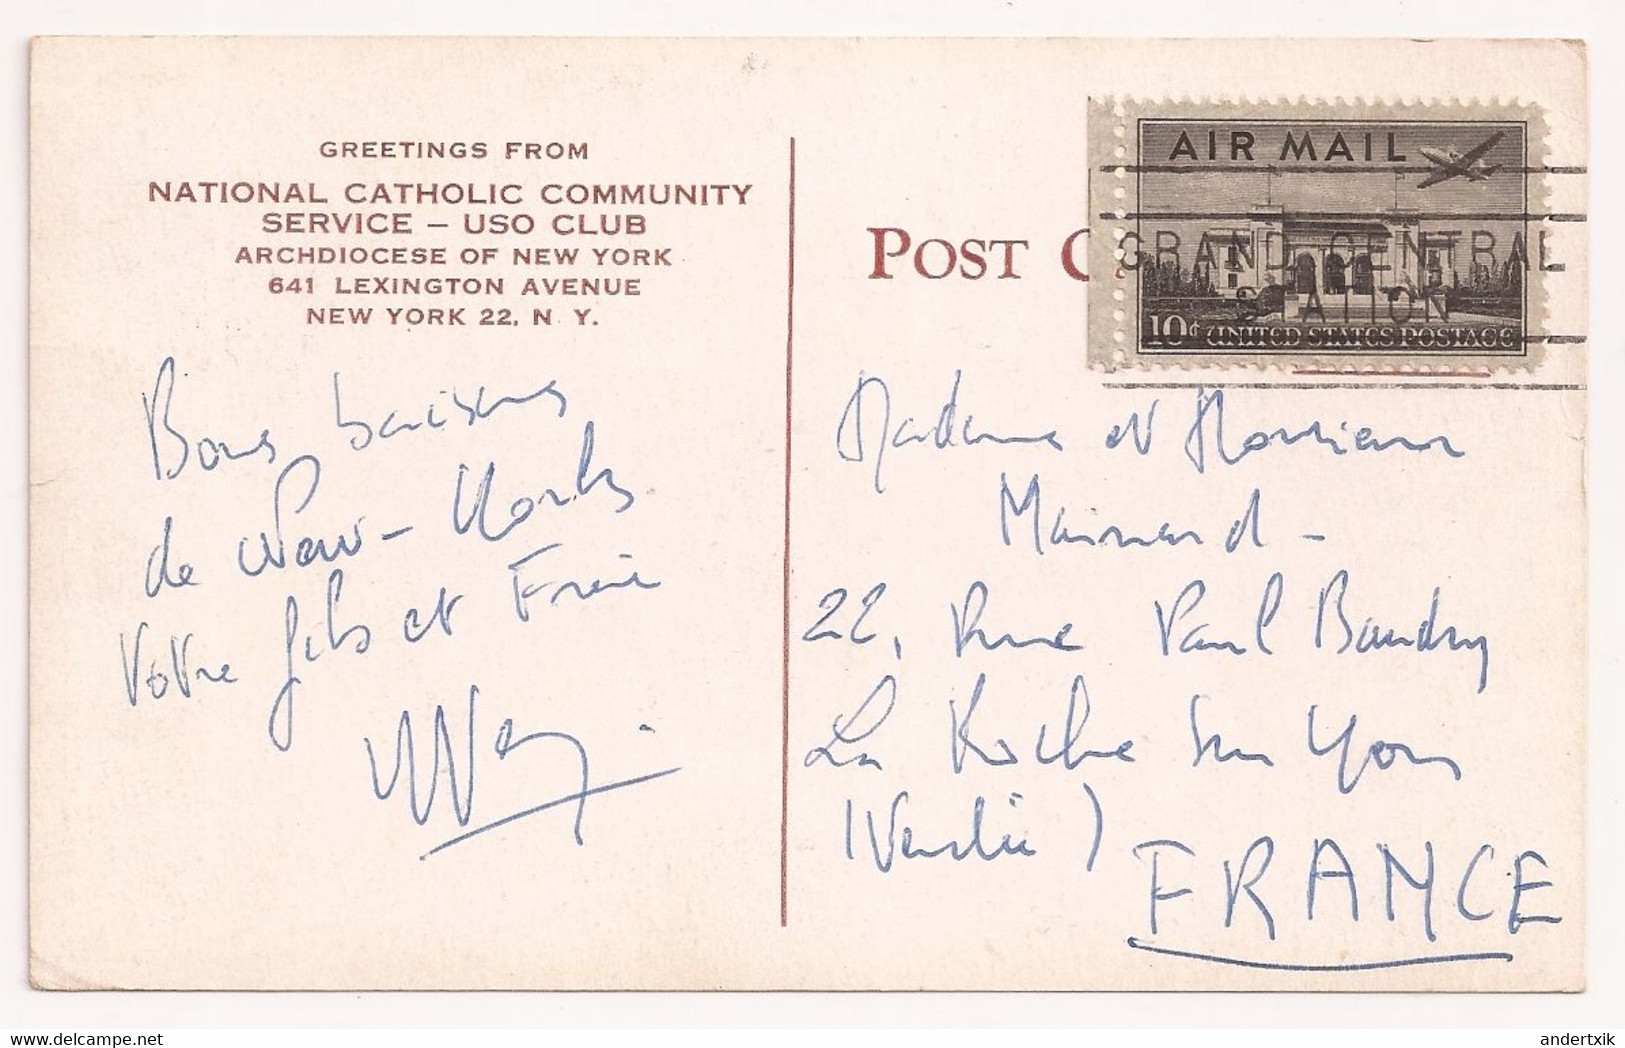 GREETINGS FROM
NATIONAL CATHOLIC COMMUNITY
SERVICE – USO CLUB
ARCHDIOCESE OF NEW YORK
641 LEXINGTON AVENUE
NEW YORK 22, N. Y.
Bons baisers
de New-York
Votre fils et Frère
POST C
AIR MAIL
GRAND CENTRAL
STATION
10¢ UNITED STATES POSTAGE
Madame et Monsieur
Mainard -
22, Rue Paul Baudry
La Roche sur Yon
(Vendée)
FRANCE
andertxik